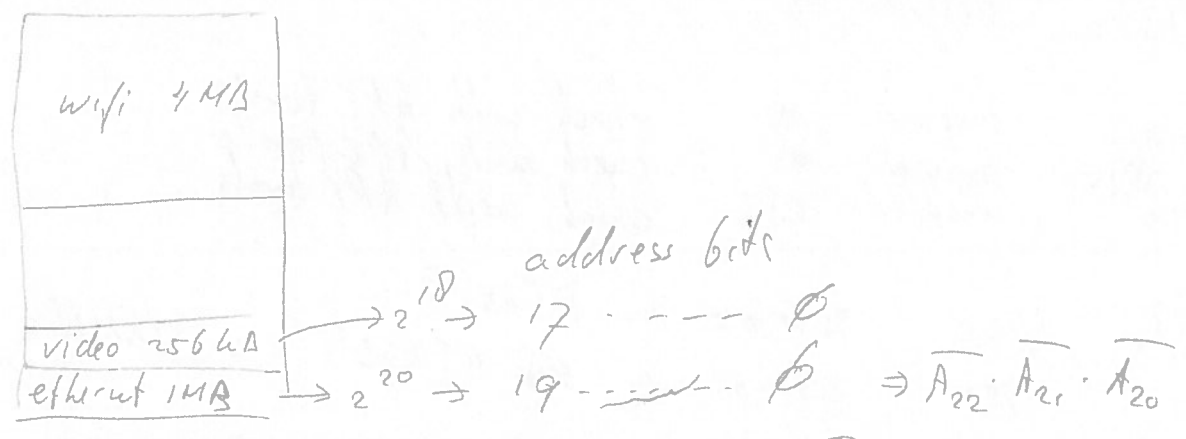 wifi 4MB
address bits
video 256kB → 2^18 → 17 - - - - - 0
ethernet 1MB → 2^20 → 19 - - - - - 0 ⇒ A̅22 · A̅21 · A̅20